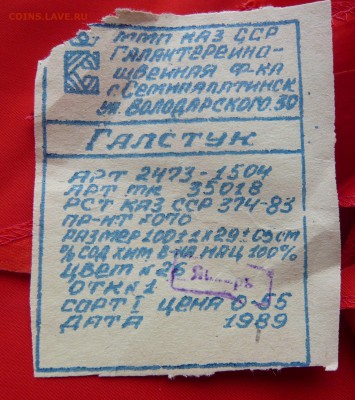 COINS.LAVE.RU
ММП КАЗ ССР
ГАЛАНТЕРЕЙНО-
ШВЕЙНАЯ Ф-КА
Г. СЕМИПАЛАТИНСК
УЛ. ВОЛОДАРСКОГО.30
ГАЛСТУК
АРТ 2473-1504
АРТ ТК 35018
РСТ КАЗ ССР 374-83
ПР-НТ 7070
РАЗМЕР 100±1×29±03 СМ
% СОД ХИМ В-НА НАЦ 100%
ЦВЕТ К 26
ОТК К 1
Январь
СОРТ I ЦЕНА 0-55
ДАТА 1989